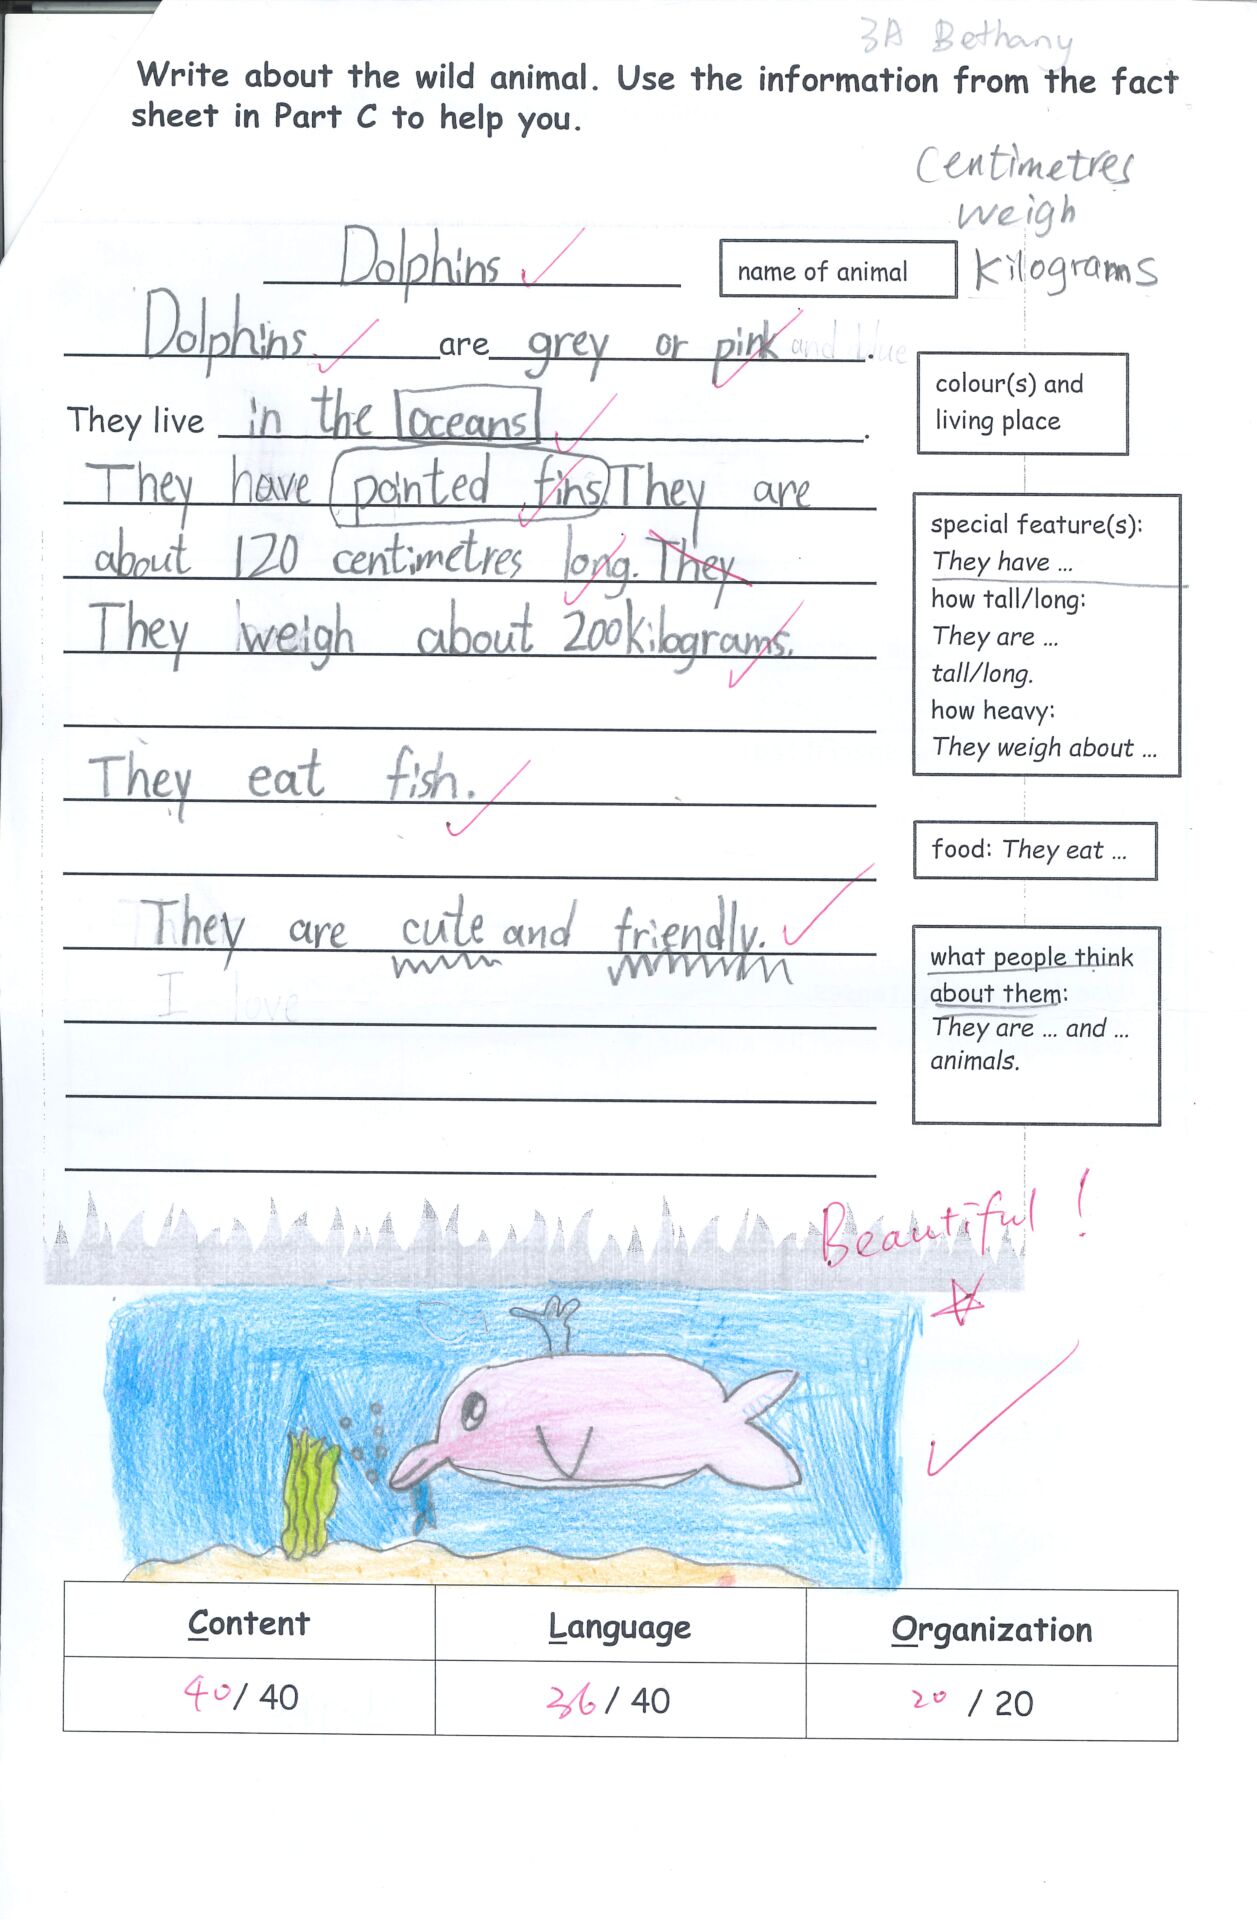 3A Bethany
Write about the wild animal. Use the information from the fact
sheet in Part C to help you.
Centimetres
weigh
kilograms
Dolphins
name of animal
Dolphins are grey or pink and blue.
colour(s) and
living place
They live in the oceans.
They have pointed fins. They are
about 120 centimetres long. They
They weigh about 200kilograms.
special feature(s):
They have ...
how tall/long:
They are ...
tall/long.
how heavy:
They weigh about ...
They eat fish.
food: They eat ...
They are cute and friendly.
I love
what people think
about them:
They are ... and ...
animals.
Beautiful!
Content
Language
Organization
40/ 40
36/ 40
20 / 20